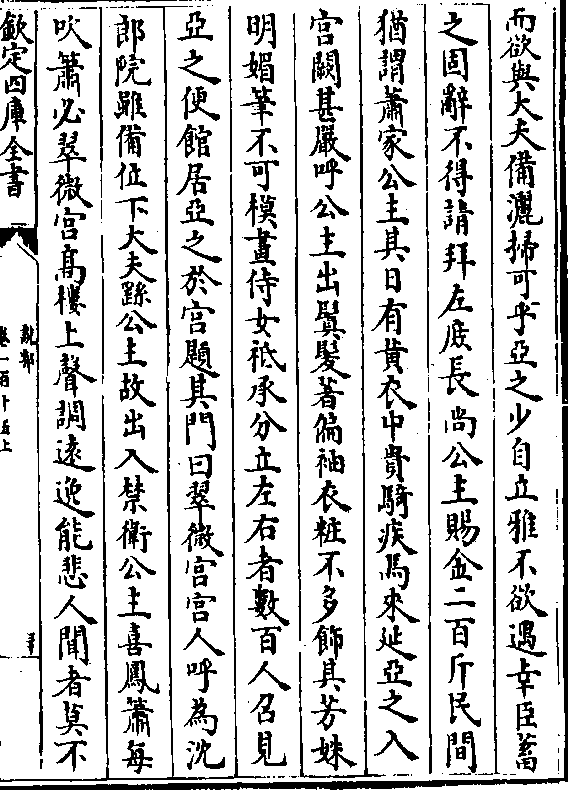 而欲與大夫備灑掃可乎亞之少自立雅不欲遇幸臣蓄
之固辭不得請拜左庶長尚公主賜金二百斤民間
猶謂蕭家公主其日有黄衣中貴騎疾馬來延亞之入
宫闕甚嚴呼公主出鬒髮著偏袖衣粧不多飾其芳姝
明媚筆不可模畫侍女祗承分立左右者數百人召見
亞之便館居亞之於宫題其門曰翠微宫宫人呼為沈
郎院雖備位下大夫繇公主故出入禁衛公主喜鳳簫每
吹簫必翠微宫髙樓上聲調遠逸能悲人聞者莫不
欽定四庫全書
說郛
卷一百十五上